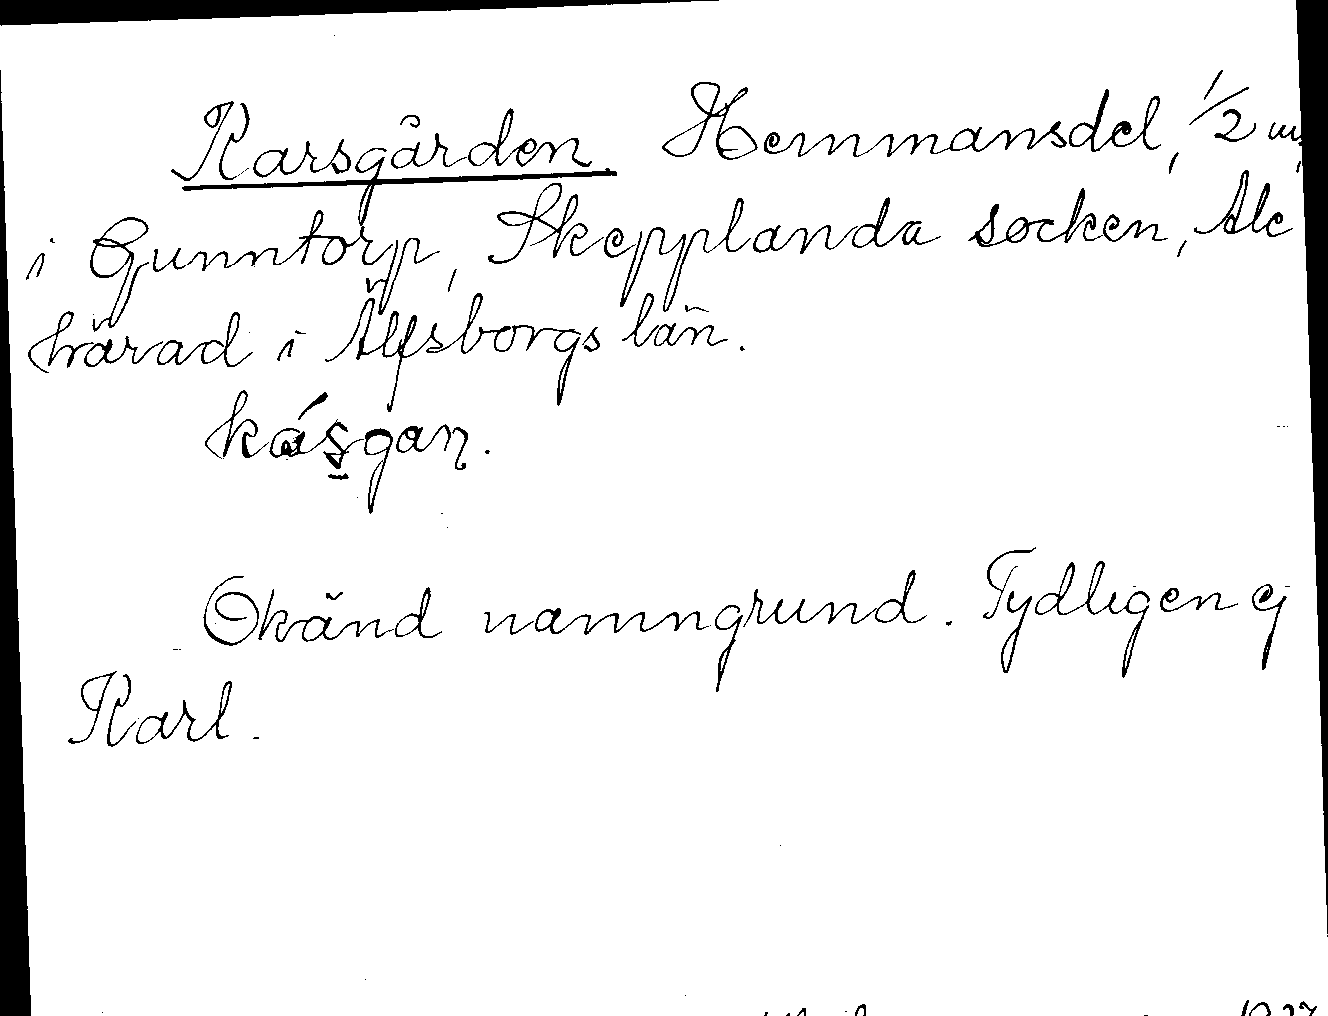 Karsgården. Hemmansdel, 1/2 m,
i Gunntorp, Skepplanda socken, Ale
härad i Älfsborgs län.
Okänd namngrund. Tydligen ej
Karl.